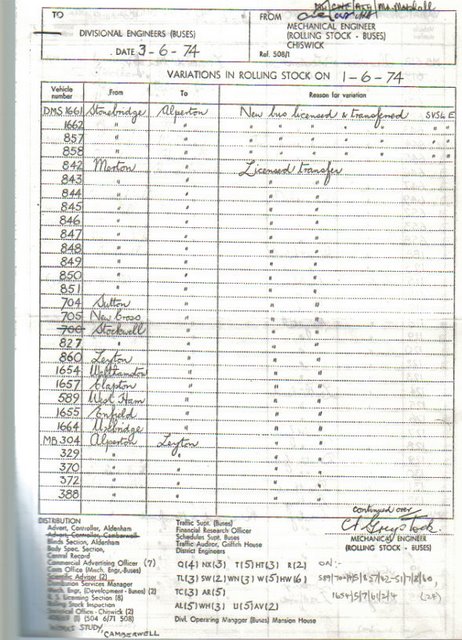 TO
DIVISIONAL ENGINEERS (BUSES)
DATE 3-6-74
FROM
MECHANICAL ENGINEER
(ROLLING STOCK - BUSES)
CHISWICK
Ref. 508/1
VARIATIONS IN ROLLING STOCK ON 1-6-74
Vehicle number From To Reason for variation
DMS 1661 Stonebridge Alperton New bus licensed & transferred
1662 " " " " " " "
857 " " " " " " "
858 " " " " " " "
842 Merton " Licensed transfer
843 " " " "
844 " " " "
845 " " " "
846 " " " "
847 " " " "
848 " " " "
849 " " " "
850 " " " "
851 " " " "
704 Sutton " " "
705 New Cross " " "
700 Stockwell " " "
827 " " " "
860 Leyton " " "
1654 Walthamstow " " "
1657 Clapton " " "
589 West Ham " " "
1655 Enfield " " "
1664 Uxbridge " " "
MB 304 Alperton Leyton " "
329 " " " "
370 " " " "
372 " " " "
388 " " " "
continued over
MECHANICAL ENGINEER
(ROLLING STOCK - BUSES)
DISTRIBUTION
Advert, Controller, Aldenham
Advert, Controller, Camberwell
Blinds Section, Aldenham
Body Spec. Section,
Central Record
Commercial Advertising Officer (7)
Costs Office (Mech. Engr.-Buses)
Scientific Advisor (2)
Distribution Services Manager
Mech. Engr. (Development - Buses) (2)
Licensing Section (8)
Rolling Stock Inspection
Office - Chiswick (2)
Officer (1) (504 6/71 508)
WORKS STUDY
CAMBERWELL
Traffic Supt. (Buses)
Financial Research Officer
Schedules Supt. Buses
Traffic Auditor, Griffith House
District Engineers
Q(4) NX(3) T(5) HT(3) R(2)
TL(3) SW(2) WN(3) W(5) HW(6)
TC(3) AR(5)
AL(5) WH(3) U(5) AV(2)
Divl. Operating Manager (Buses) Mansion House
ON:-